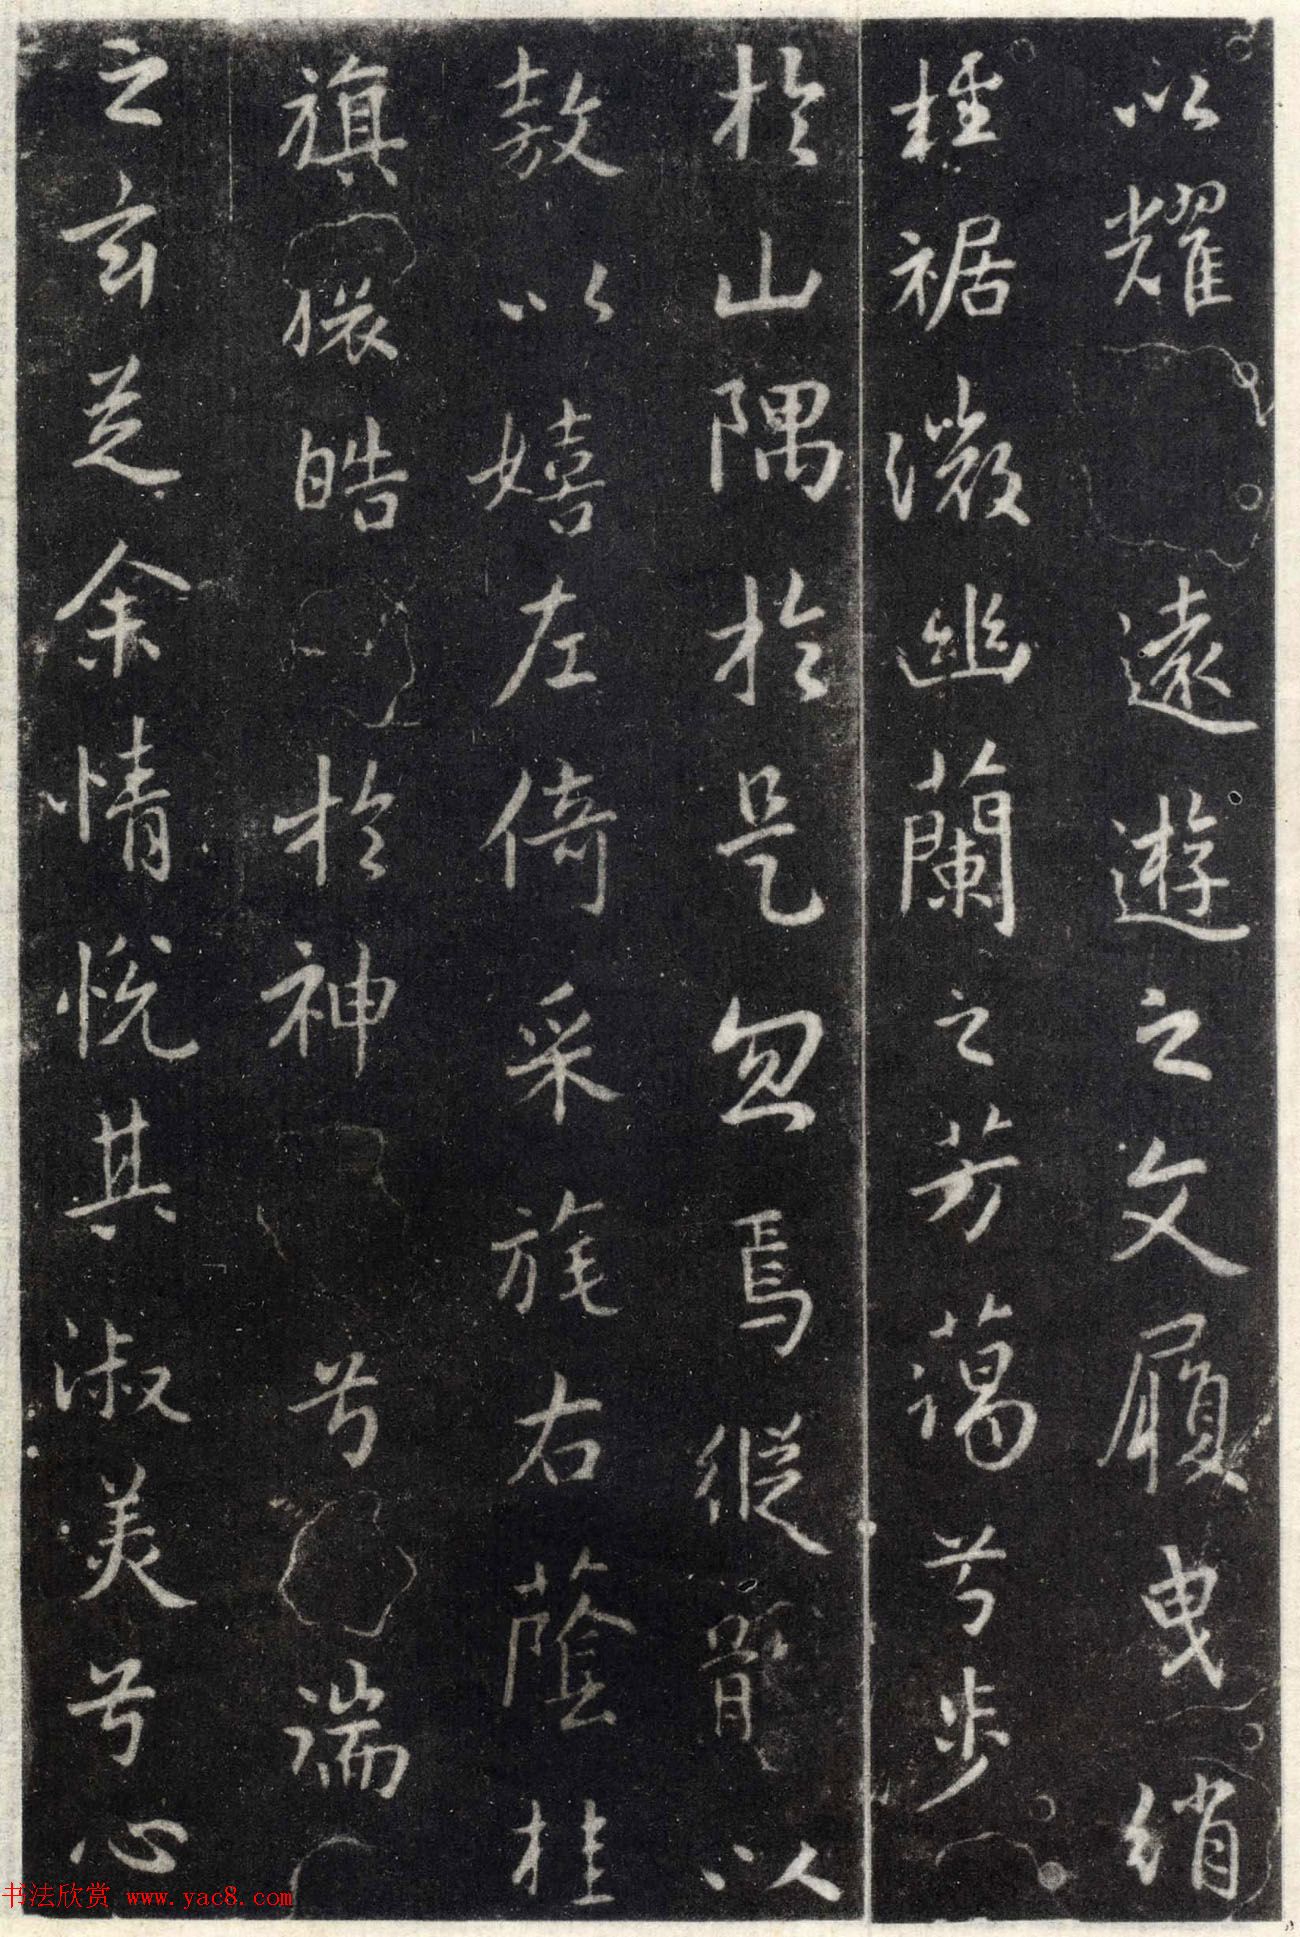 以耀遠遊之文履曳綃
輕裾微幽蘭之芳藹兮步
於山隅於是忽焉縱體以
敖以嬉左倚采旄右蔭桂
旗攘皓於神兮湍
之玄芝余情悅其淑美兮心
书法欣赏 www.yac8.com